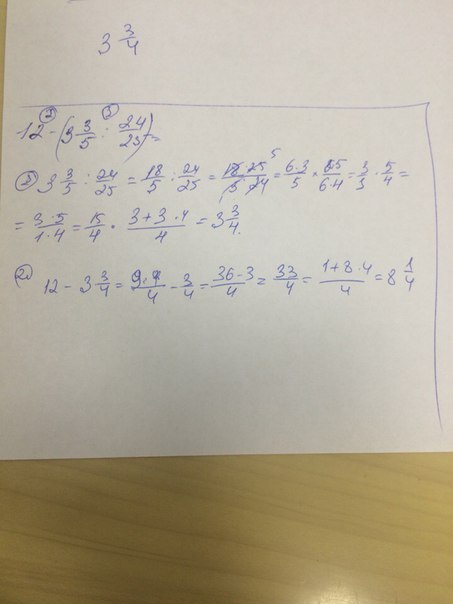 3 3/4
12 - (3 3/5 : 24/25) =
3 3/5 : 24/25 = 18/5 : 24/25 = 18·25/5·24 = 6·3/5 × 25/6·4 = 3/3 · 5/4 =
= 3·5/1·4 = 15/4 · 3+3·4/4 = 3 3/4.
② 12 - 3 3/4 = 9·4/4 - 3/4 = 36-3/4 = 33/4 = 1+8·4/4 = 8 1/4